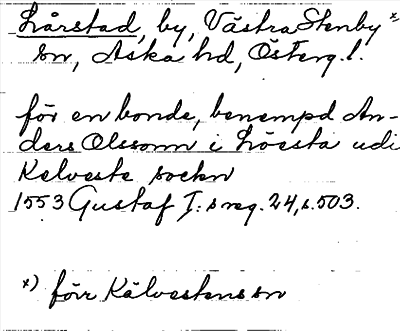 Lårstad, by, Västra Stenby x)
sn, Aska hd, Österg. l.
för en bonde, benempd An-
ders Olssonn i Lörsta udi
Kelveste sockn
1553 Gustaf I:s reg. 24, s. 503.
x) förr Kälvestens sn